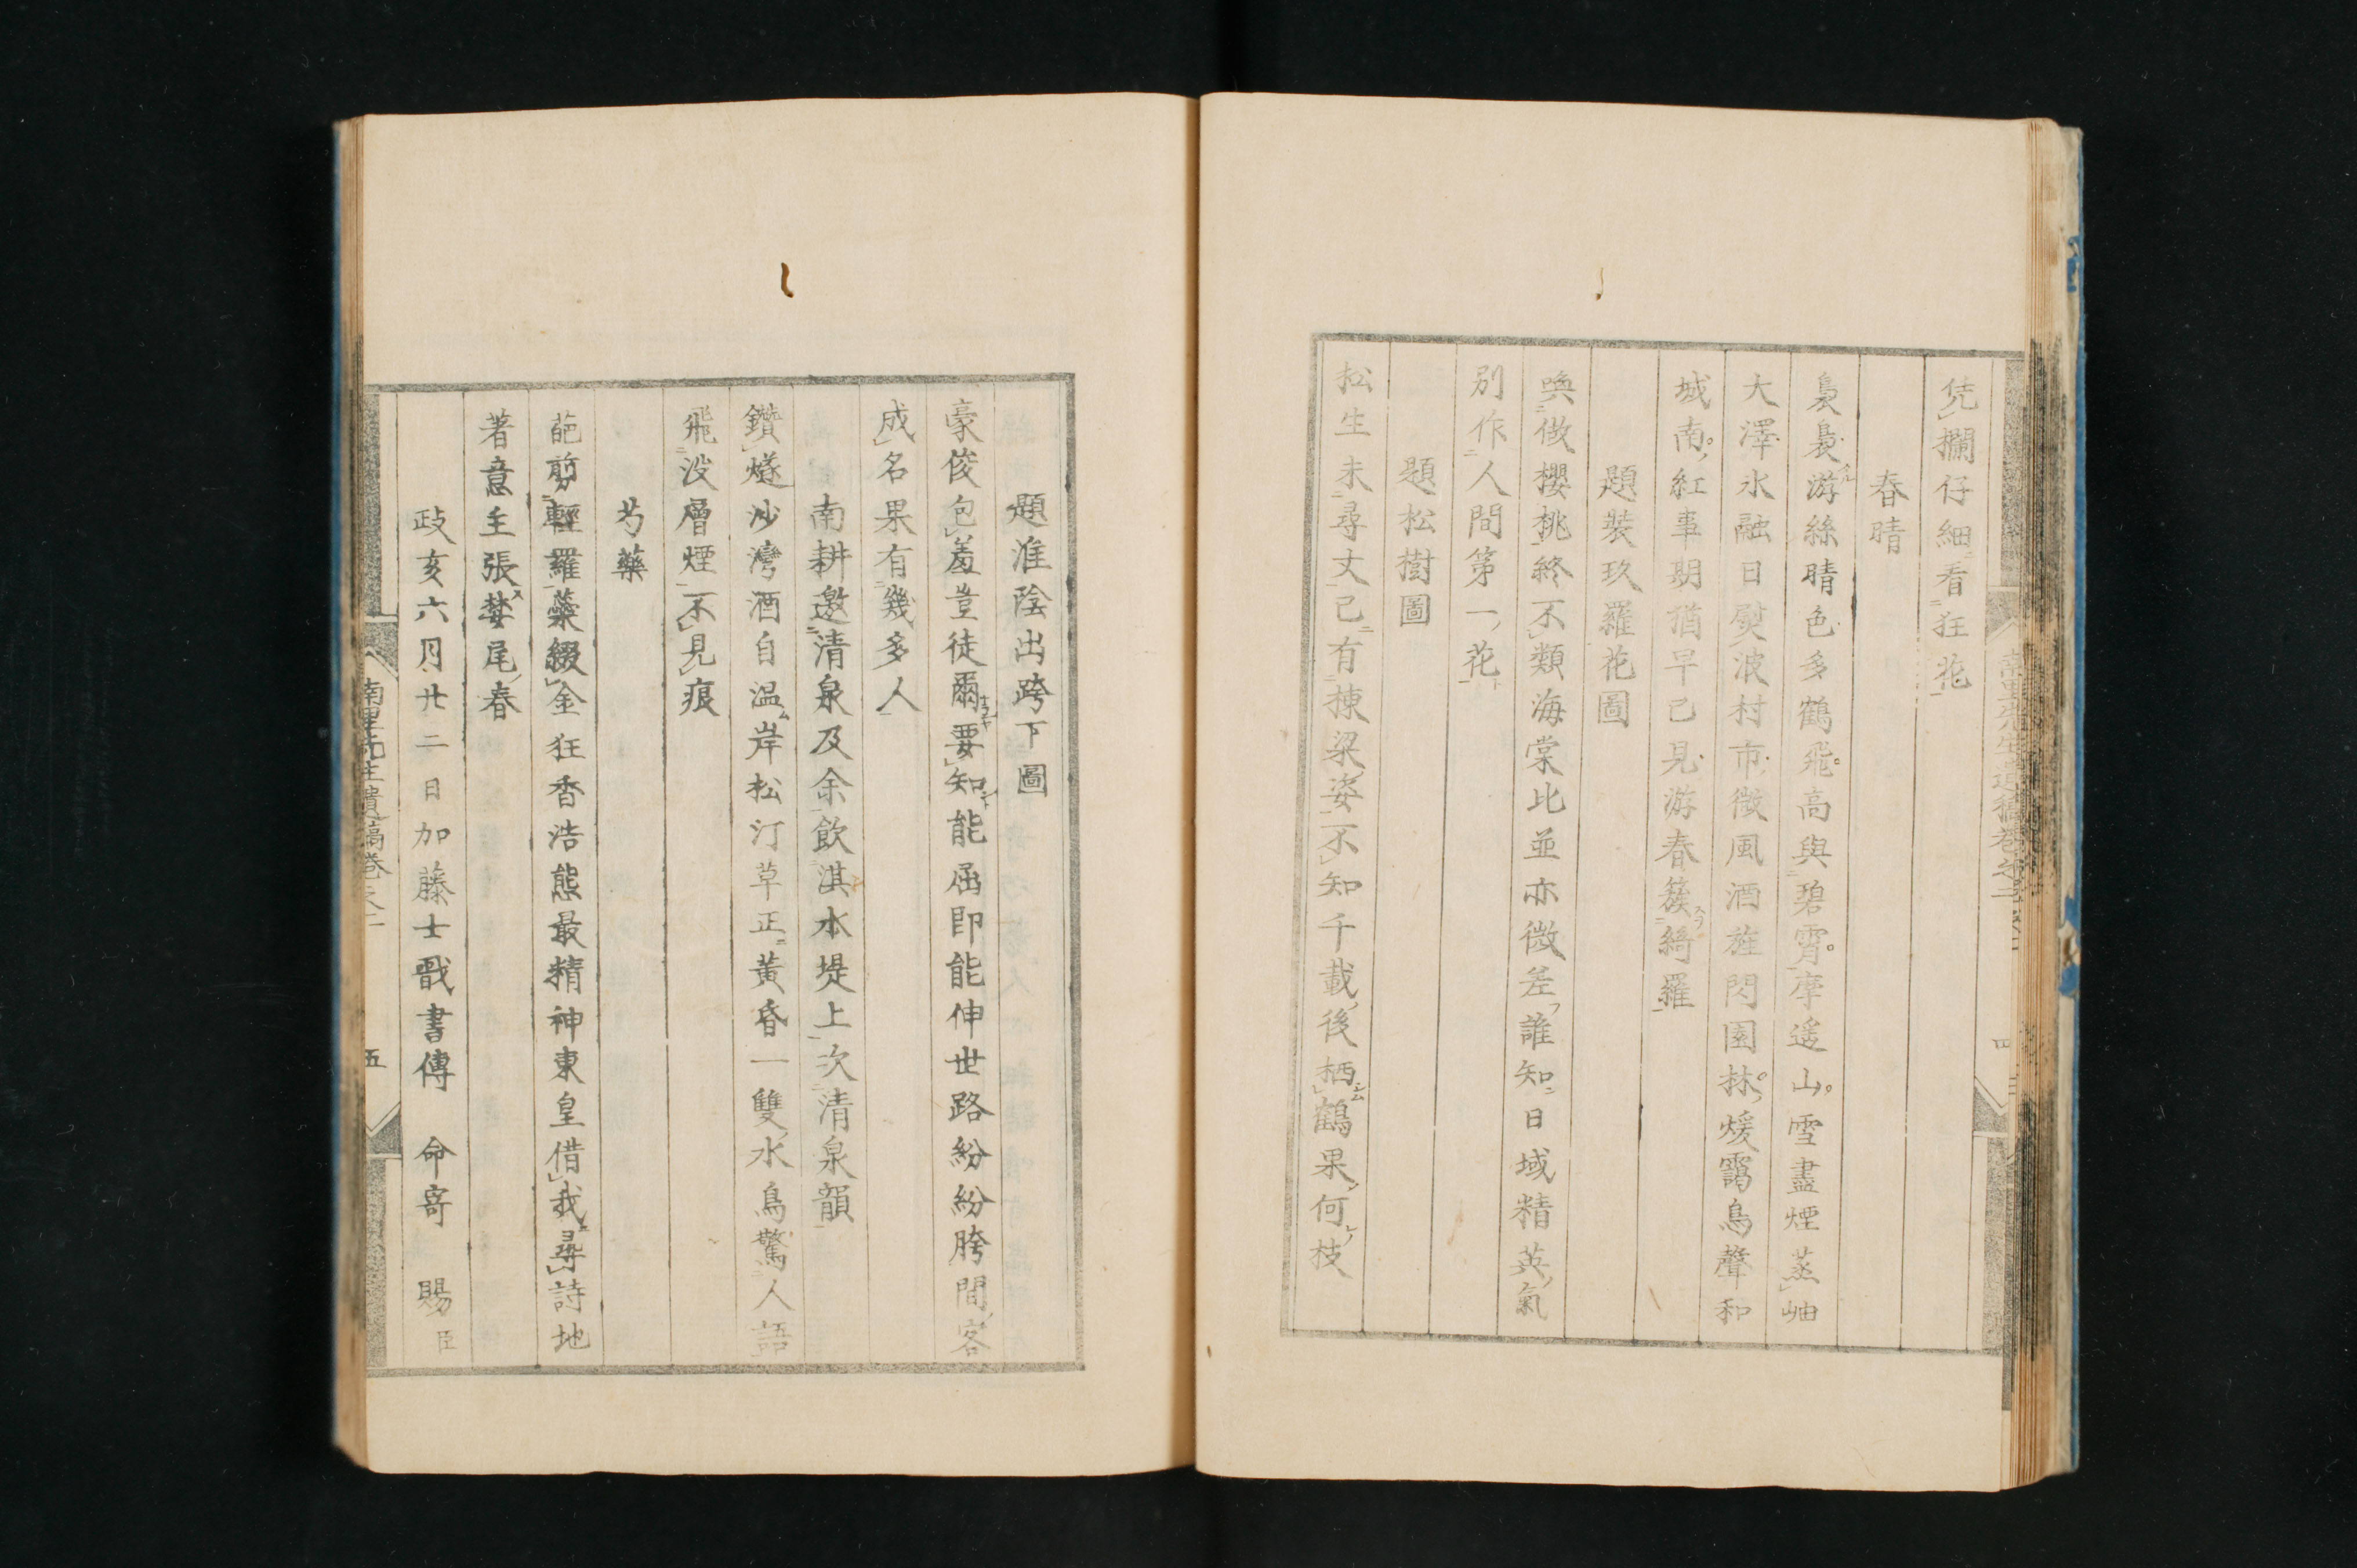 凭欄仔細看狂花
春晴
裊裊游絲晴色多鶴飛高與碧霄摩遥山雪盡煙蒸岫
大澤氷融日熨波村市微風酒旌閃園林煖靄鳥聲和
城南紅事期猶早已見游春簇綺羅
題裝玖羅花圖
喚做櫻桃終不類海棠比並亦微差誰知日域精英氣
別作人間第一花
題松樹圖
松生未尋丈已有棟梁姿不知千載後栖鶴果何枝
南里先生遺稿卷之
四
題淮陰出跨下圖
豪俊包羞豈徒爾要知能屈即能伸世路紛紛胯間客
成名果有幾多人
南耕邀清泉及余飲淇水堤上次清泉韻
鑽燧沙灣酒自温岸松汀草正黄昏一雙水鳥驚人語
飛没層煙不見痕
芍藥
葩剪輕羅蘂綴金狂香浩態最精神東皇借我尋詩地
著意主張婪尾春
㱏亥六月廿二日加藤士戬書傳 命寄 賜臣
南里先生遺稿卷之
五